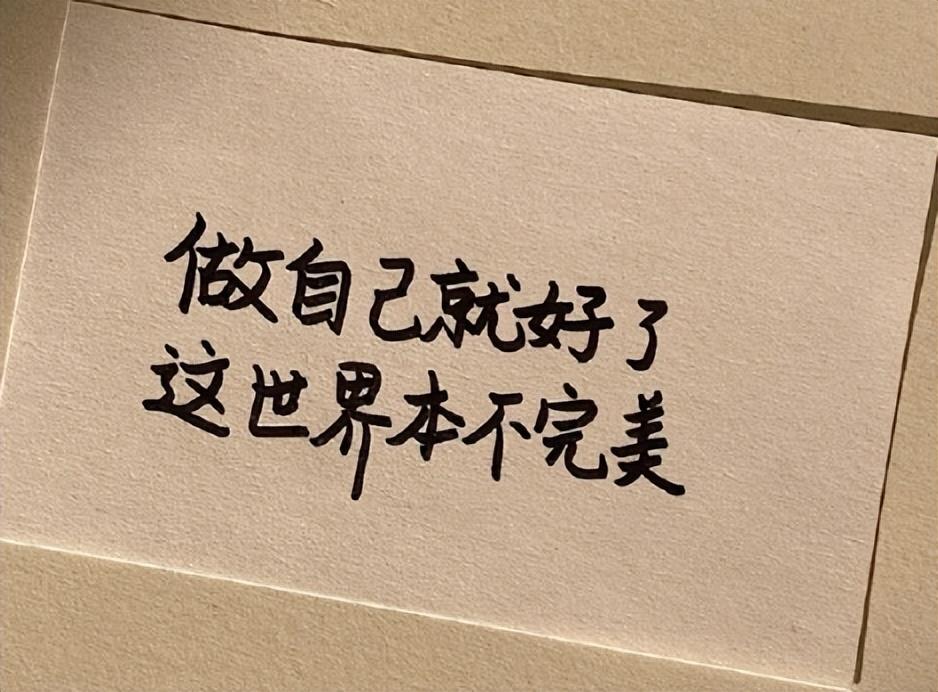 做自己就好了
这世界本不完美